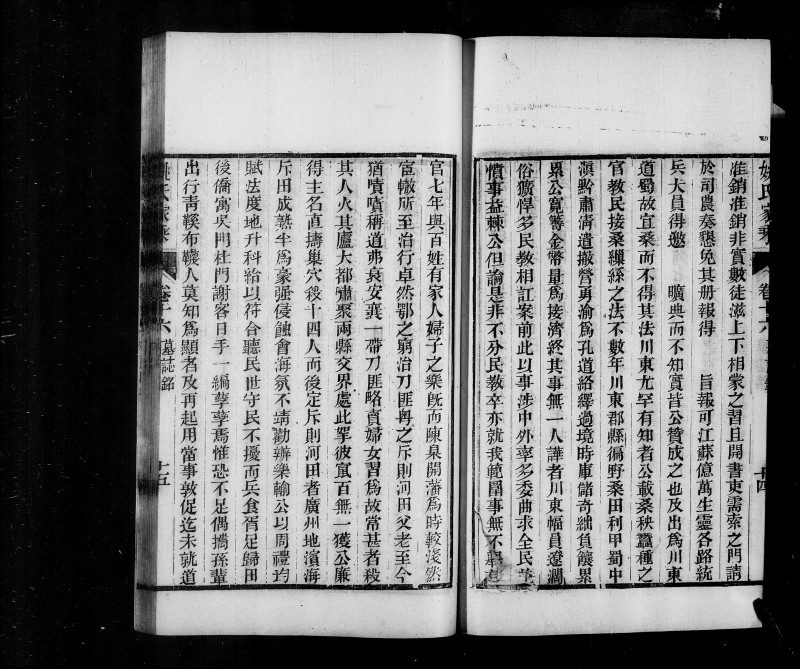 姚氏家乘 卷十六 十四
准銷准銷非實數徒滋上下相蒙之習且開書吏需索之門請
於司農奏懇免其册報得 旨報可江蘇億萬生靈各路統
兵大員得邀 曠典而不知實皆公贊成之也及出為川東
道蜀故宜桑而不得其法川東尤罕有知者公載桑秧蠶種之
官教民接桑繅絲之法不數年川東郡縣徧野桑田利甲蜀中
滇黔肅清道撤營勇渝為孔道絡繹過境時庫儲奇絀負餉累
累公寬籌金幣量為接濟終其事無一人譁者川東幅員遼濶
俗獷悍多民教相訌案前此以事涉中外率多委曲求全民
憤事益棘公但論是非不分民教卒亦就我範圍事無不舉
官七年與百姓有家人婦子之樂旣而陳臬開藩為時較淺然
宦轍所至治行卓然鄂之窮治刀匪粵之斥則河田父老至今
猶嘖嘖稱道弗衰安襄一帶刀匪略賣婦女習為故常甚者殺
其人火其廬大都嘯聚兩縣交界處此拏彼竄百無一獲公廉
得主名直擣巢穴殺十四人而後定斥則河田者廣州地濱海
斥田成熟半為豪强侵蝕會海氛不靖勸辦樂輸公以周禮均
賦法度地升科給以符合聽民世守民不擾而兵食胥足歸田
後僑寓吳門杜門謝客日手一編孳孳焉惟恐不足偶攜孫輩
出行靑鞵布韈人莫知為顯者及再起用當事敦促迄未就道
氏家乘 卷十六 墓誌銘 十五